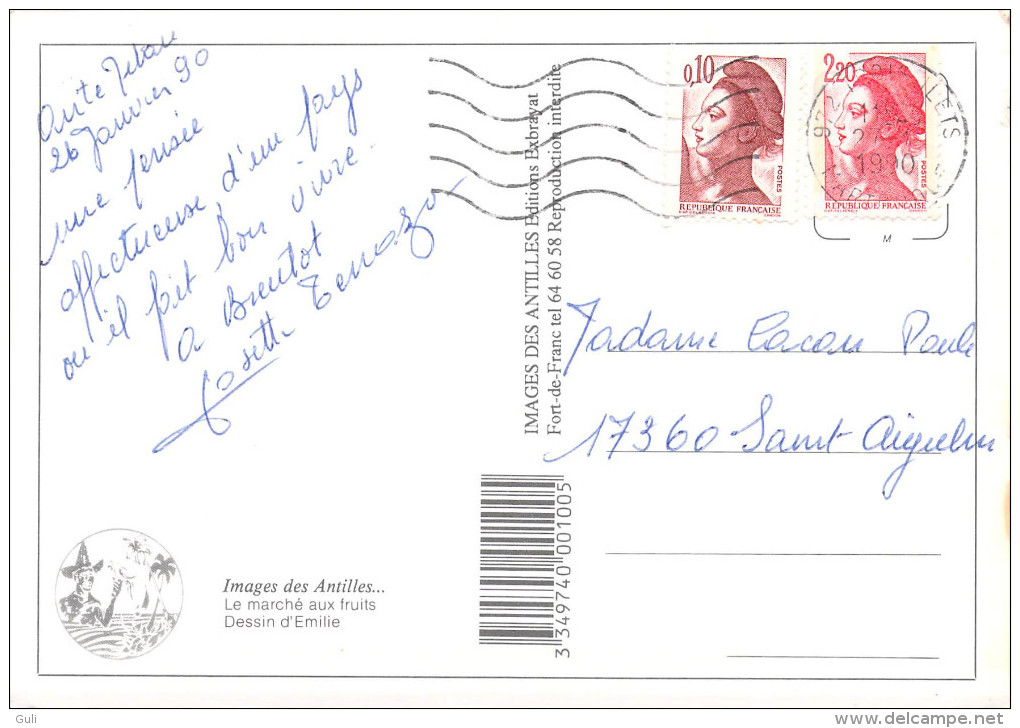 26 Janvier 90
une pensée
affectueuse d'un pays
ou il fait bon vivre.
a Bientot
Cosette
0,10
POSTES
RÉPUBLIQUE FRANÇAISE
2,20
POSTES
RÉPUBLIQUE FRANÇAISE
1990
M
IMAGES DES ANTILLES Editions Exbrayat
Fort-de-Franc tel 64 60 58 Reproduction interdite
Madame Lacour Paule
17360 Saint Aigulin
3 349740 001005
Images des Antilles...
Le marché aux fruits
Dessin d'Emilie
Guli
delcampe.net